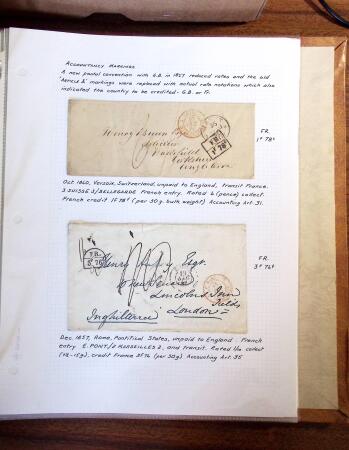 ACCOUNTANCY MARKINGS
A new postal convention with G.B. in 1857 reduced rates and the old
'Article' markings were replaced with actual rate notations which also
indicated the country to be credited - G.B. or Fr.
FR.
1F 78c
FR.
1F 78c
Oct. 1860, Versoix, Switzerland, unpaid to England, transit France.
3 SUISSE 3/BELLEGARDE French entry. Rated 6 (pence) collect.
French credit 1F 78c (per 30g. bulk weight) Accounting Art. 31.
FR.
3F 76c
FR.
3F 76c
Henry Esqr.
Lincolns Inn
Fields
London
Inghilterra
Dec. 1857, Rome, Pontifical States, unpaid to England French
entry E. PONT./2 MARSEILLES 2, and transit. Rated 1/10 collect
(7½-15g), credit France 3F 76 (per 30g) Accounting Art. 35